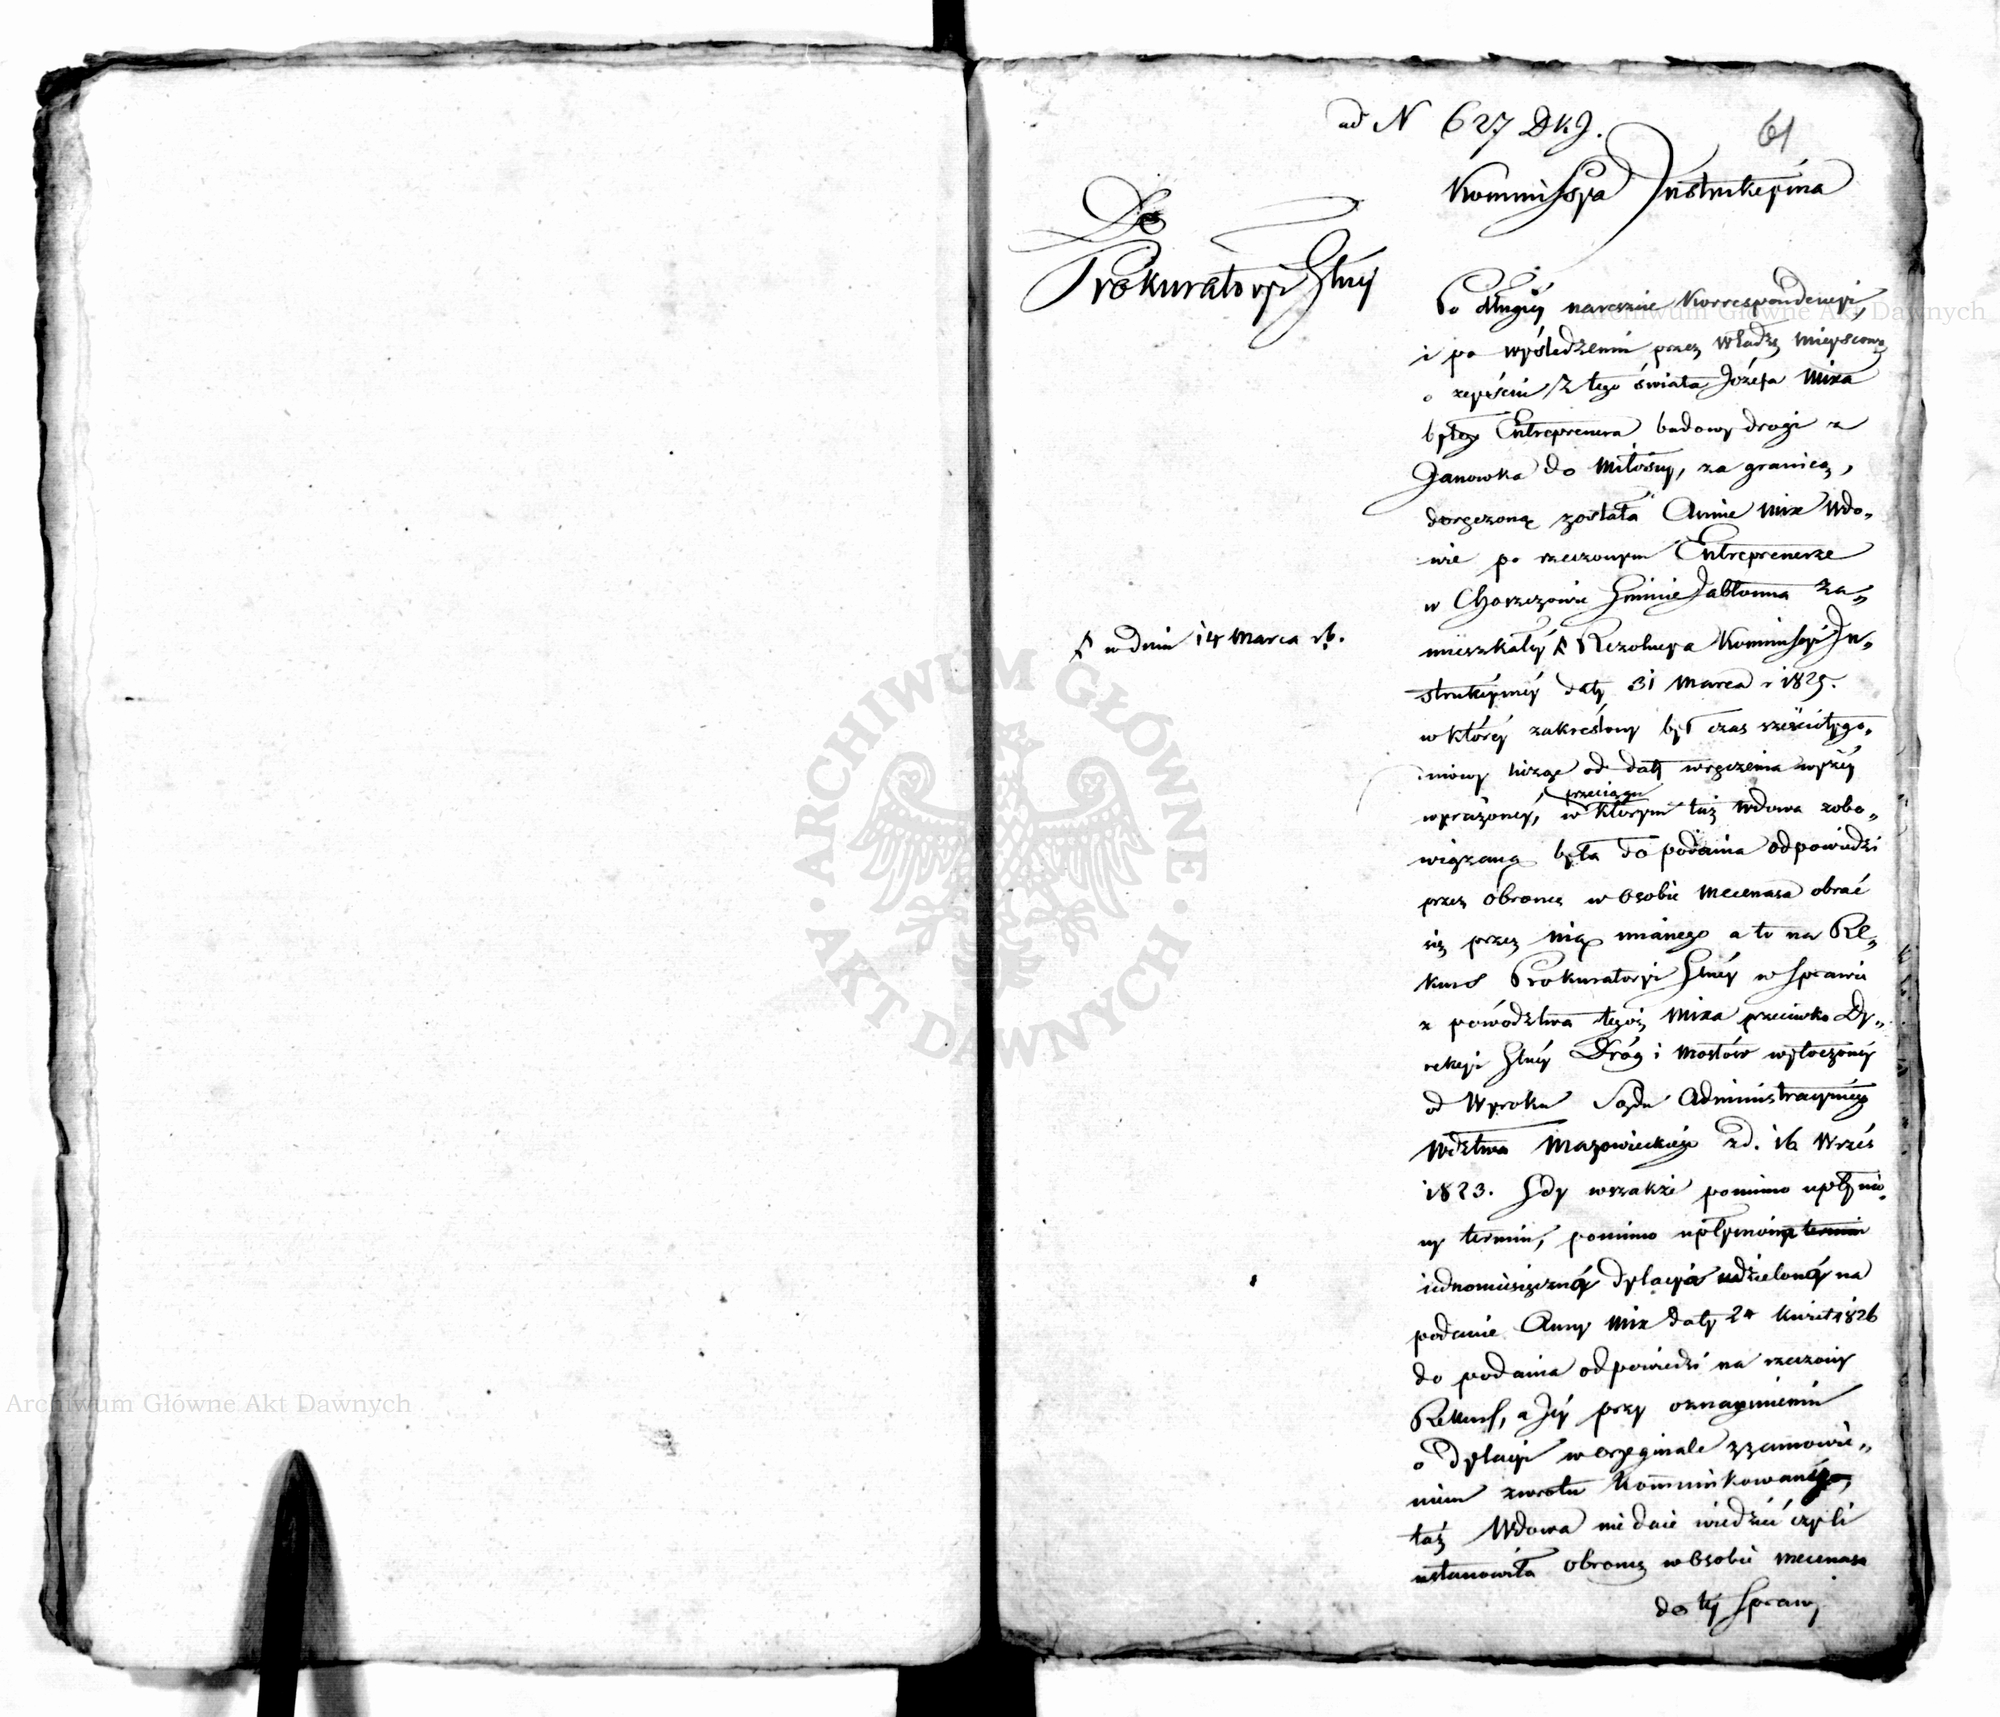 ad N 627 DKJ.
61
Kommissya Instrukcyina
Do
Prokuratoryi Głney
Po długiéy nareszcie Korrespondencyi,
i po wyśledzeniu przez Władzę mieyscową
o zeyściu z tego świata Józefa Mixa
byłego Entreprenera budowy drogi z
Janowka do Miłosny, za granicą,
doręczoną została Annie Mix Wdo„
wie po rzeczonym Entreprenerze
w Choszczowie Gminie Jabłonna Za„
mieszkałéy Rezolucya Kommissyi In„
w dniu 14 Marca rb.
strukcyinéy daty 31 Marca r 1825.
w któréy zakreślony był czas sześciotygo„
niowy licząc od daty wręczenia wyżéy
przeciągu
wyrażonéy, w którym taż Wdowa zobo„
wiązaną była do podania odpowiedzi
przez obrońcę w osobie Mecenasa obrać
się przez nią mianego a to na Re„
kurs Prokuratoryi Głnéy w Sprawie
z powództwa tegoż Mixa przeciwko Dy„
rekcyi Głnéy Dróg i Mostów wytoczonéy
od Wyroku Sądu Administracyinego
Wdztwa Mazowieckiego z d. 16 Wrześ
1823. Gdy wszakże pomimo upłynio„
ny termin, pomimo upłynioną termin
iednomiesięczną dylacyą udzieloną na
podanie Anny Mix daty 24 Kwiet 1826
do podania odpowiedzi na rzeczony
Rekurs, a Jéy przy oznaymieniu
o dylacyi w oryginale z zamówie„
niem zwrotu Kommunikowanego,
taż Wdowa nie daie wiedzieć czyli
ustanowiła obrońcę w osobie mecenasa
do téy Sprawy
Archiwum Główne Akt Dawnych
Archiwum Główne Akt Dawnych
ARCHIWUM GŁÓWNE
AKT DAWNYCH